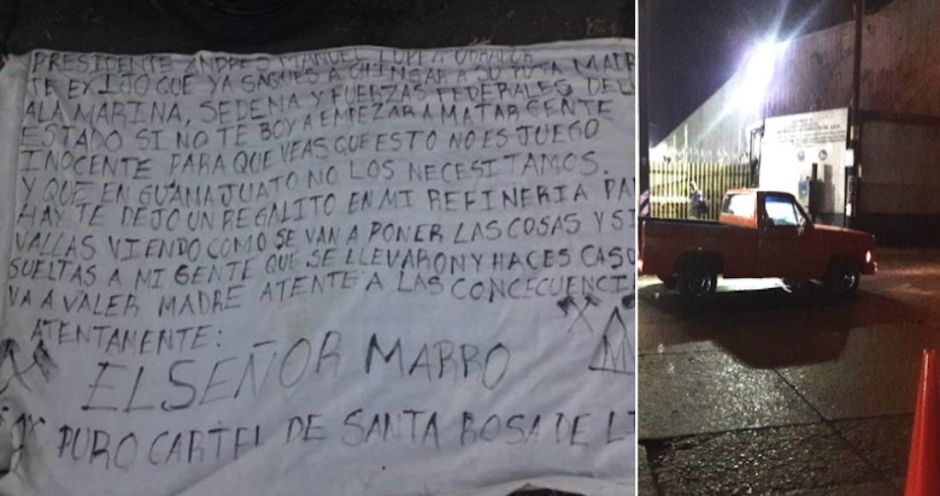 PRESIDENTE ANDRES MANUEL LOPEZ OBRADOR
TE EXIJO QUE YA SAQUES A CHINGAR A SU PUTA MADR
A LA MARINA, SEDENA Y FUERZAS FEDERALES DEL
ESTADO SI NO TE BOY A EMPEZAR A MATAR GENTE
INOCENTE PARA QUE VEAS QUE ESTO NO ES JUEGO
Y QUE EN GUANAJUATO NO LOS NECESITAMOS.
HAY TE DEJO UN REGALITO EN MI REFINERIA PA
VALLAS VIENDO COMO SE VAN A PONER LAS COSAS Y SI
SUELTAS A MI GENTE QUE SE LLEVARON Y HACES CASO
VA A VALER MADRE ATENTE A LAS CONCECUENCI
ATENTAMENTE:
EL SEÑOR MARRO
PURO CARTEL DE SANTA ROSA DE LI